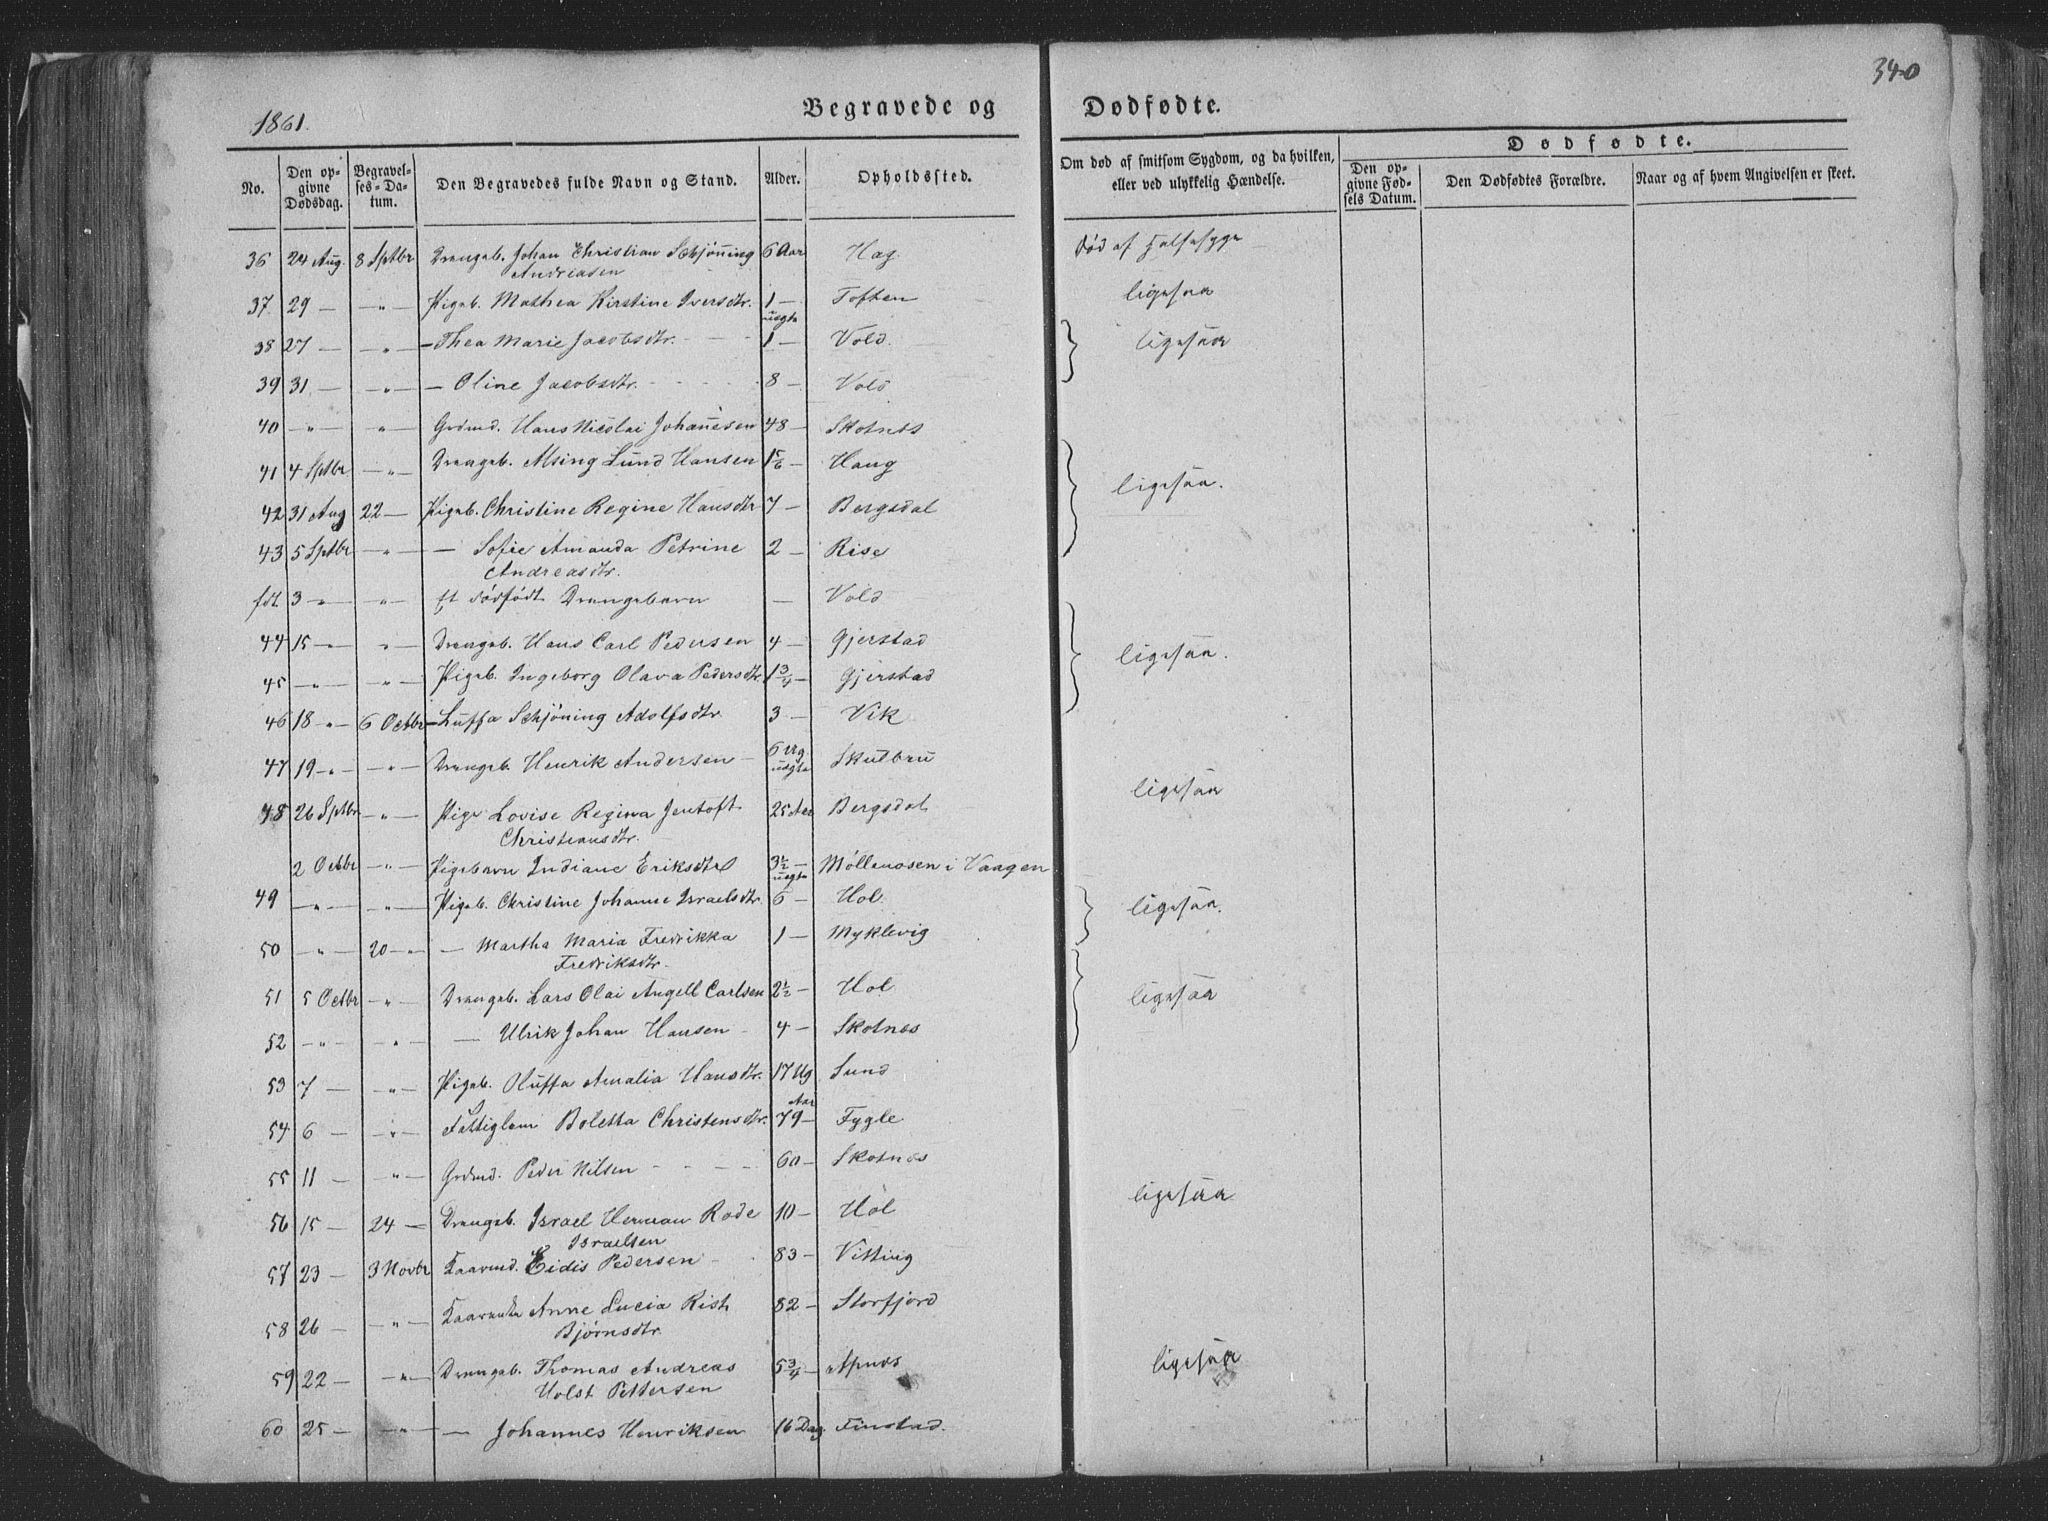 340
1861.
Begravede og Dødfødte.
No. | Den opgivne Dødsdag. | Begravelses-Datum. | Den Begravedes fulde Navn og Stand. | Alder. | Opholdssted. | Om død af smitsom Sygdom, og da hvilken, eller ved ulykkelig Hændelse. | Dødfødte. | Den opgivne Fødsels Datum. | Den Dødfødtes Forældre. | Naar og af hvem Angivelsen er skeet.
36 24 Aug. 8 Sptbr Drengeb. Johan Christian Schjøning 6 Aar Hag død af Halssyge
Andreasen
37 29 — " — Pigeb. Mathea Kirstine Iversdtr. 1 — Toften ligesaa
uægte
38 27 — " — — Thea Marie Jacobsdtr. 1 — Vold ligesaa
39 31 — " — — Oline Jacobsdtr. 8 — Vold
40 — " — " — Grdmd. Hans Nicolai Johannesen 48 — Skotnes
41 4 Sptbr — " — Drengeb. Msing Lund Hansen Haug
42 31 Aug 22 — Pigeb. Christine Regine Hansdtr 7 — Bergsdal ligesaa.
43 5 Sptbr — " — — Sofie Amanda Petrine 2 — Rise
Andreasdtr.
fdt. 3 — " — " — Et dødfødt Drengebarn — Vold
44 15 — " — " — Drengeb. Hans Carl Pedersen 4 — Gjerstad
45 — " — " — Pigeb. Ingeborg Olava Pedersdtr. 1 3/4 — Gjerstad ligesaa.
46 18 — " — 6 Octbr — Luffa Schjøning Adolfsdtr 3 — Vik
47 19 — " — " — Drengeb. Henrik Andersen — 6 Ug. uægte Skulbru
48 26 Sptbr — " — Pige Lovise Regina Jentoft 25 Aar Bergsdal ligesaa
Christiansdtr.
2 Octbr — " — Pigebarn Indiane Eriksdtr 3 1/2 — Møllenosen i Vaagen
uægte
49 — " — " — Pigeb. Christine Johanne Israelsdtr. 6 — Hol. ligesaa.
50 — " — 20 — " — — Martha Maria Fredrikka 1 — Myklevig
Fredriksdtr.
51 5 Octbr — " — Drengeb. Lars Olai Angell Carlsen 2 1/2 — Hol ligesaa
52 — " — " — — Ulrik Johan Hansen — 4 — Skotnes
53 7 — " — Pigeb. Oluffa Amalia Hansdtr. 17 Ug Sund
Aar
54 6 — " — Fattiglem Boletta Christensdtr. 79 — Fygle
55 11 — " — Grdmd. Peder Nilsen 60 — Skotnes
56 15 — 24 — Drengeb. Israel Herman Rode 10 — Hol ligesaa
Israelsen
57 23 — 3 Novbr Kaarmd. Eidis Pedersen — 83 — Vitting
58 26 — " — Kaarenke Anne Lucia Rist 82 — Storfjord
Bjørnsdtr.
59 22 — " — Drengeb. Thomas Andreas 5 3/4 — Apnes ligesaa
Holst Pettersen
60 25 — " — — Johannes Henriksen 16 Dag. Finstad.